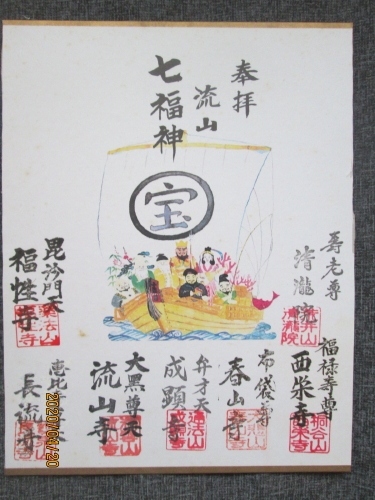 奉拝
流山
七福神
宝
寿老尊
清瀧院
毘沙門天
福性寺
福禄寿尊
西栄寺
布袋尊
春山寺
弁才天
成顕寺
大黒尊天
流山寺
恵比
長流寺
2020/01/20